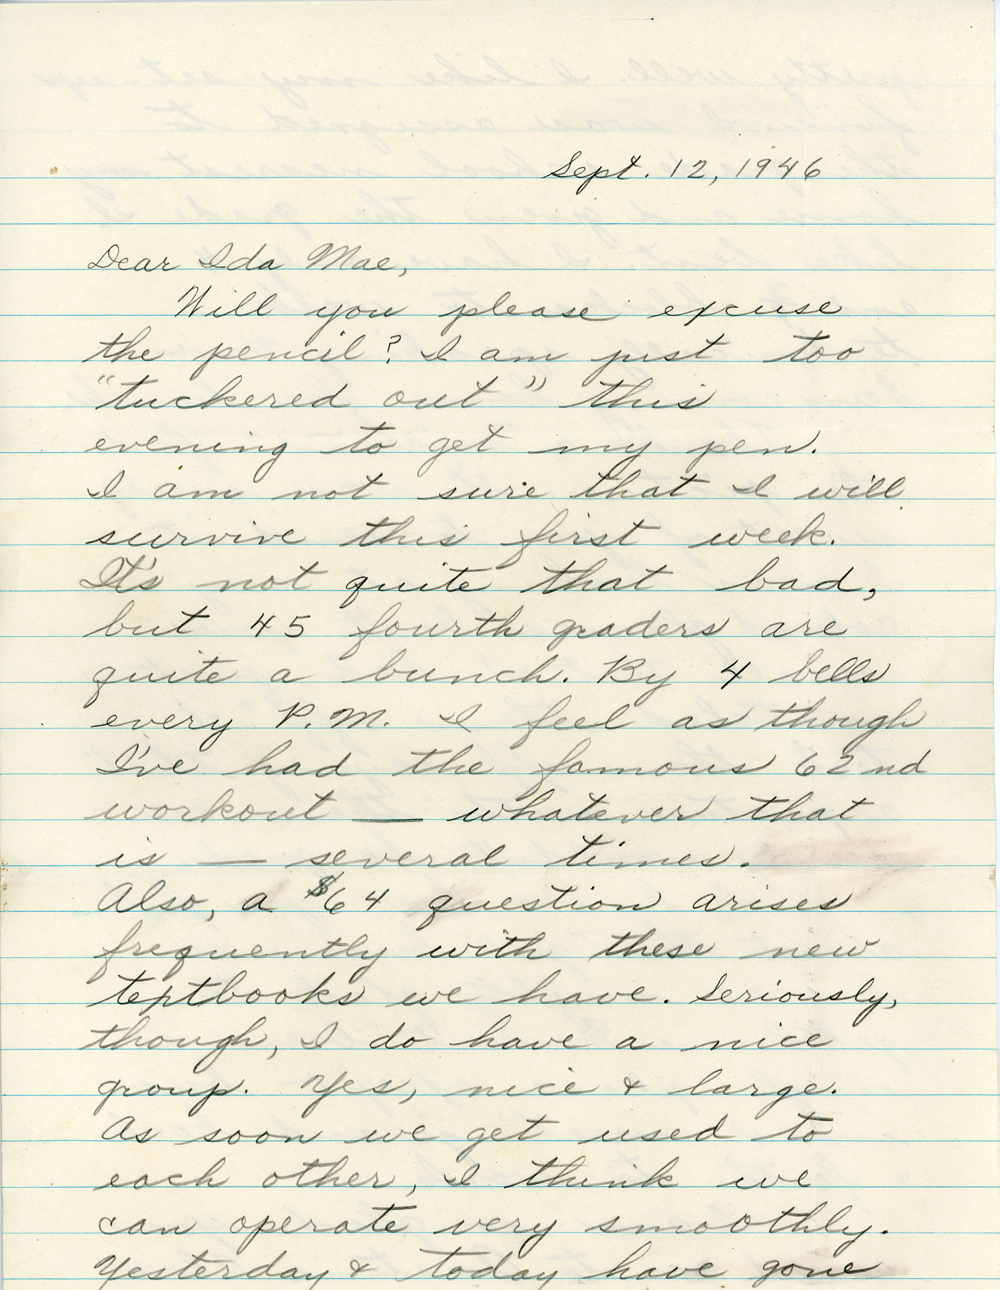 Sept. 12, 1946
Dear Ida Mae,
Will you please excuse
the pencil? I am just too
"tuckered out" this
evening to get my pen.
I am not sure that I will
survive this first week.
It's not quite that bad,
but 45 fourth graders are
quite a bunch. By 4 bells
every P.M. I feel as though
I've had the famous 62nd
workout — whatever that
is — several times.
Also, a $64 question arises
frequently with these new
textbooks we have. Seriously,
though, I do have a nice
group. Yes, nice & large.
As soon we get used to
each other, I think we
can operate very smoothly.
Yesterday & today have gone